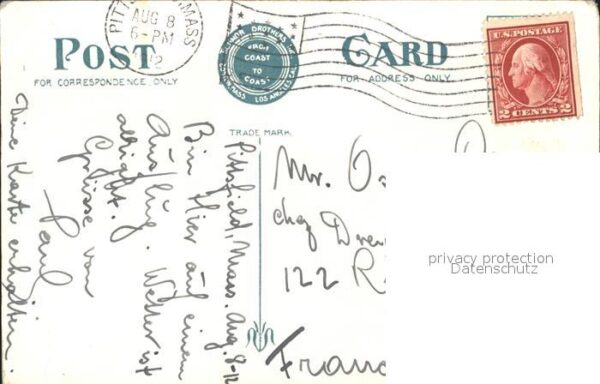 PITT MASS
AUG 8
6-PM
12
POST CARD
FOR CORRESPONDENCE ONLY
FOR ADDRESS ONLY
BROTHERS
FROM
COAST
TO
COAST
LOS ANGELES CAL.
U.S. POSTAGE
2 CENTS 2
TRADE MARK
Pittsfield, Mass. Aug. 8-12
Bin hier auf einem
Ausflug. Wetter ist
allright.
Grüsse von
Paul
Deine Karte erhalten.
Mr. O
chez
122 R
Franc
privacy protection
Datenschutz